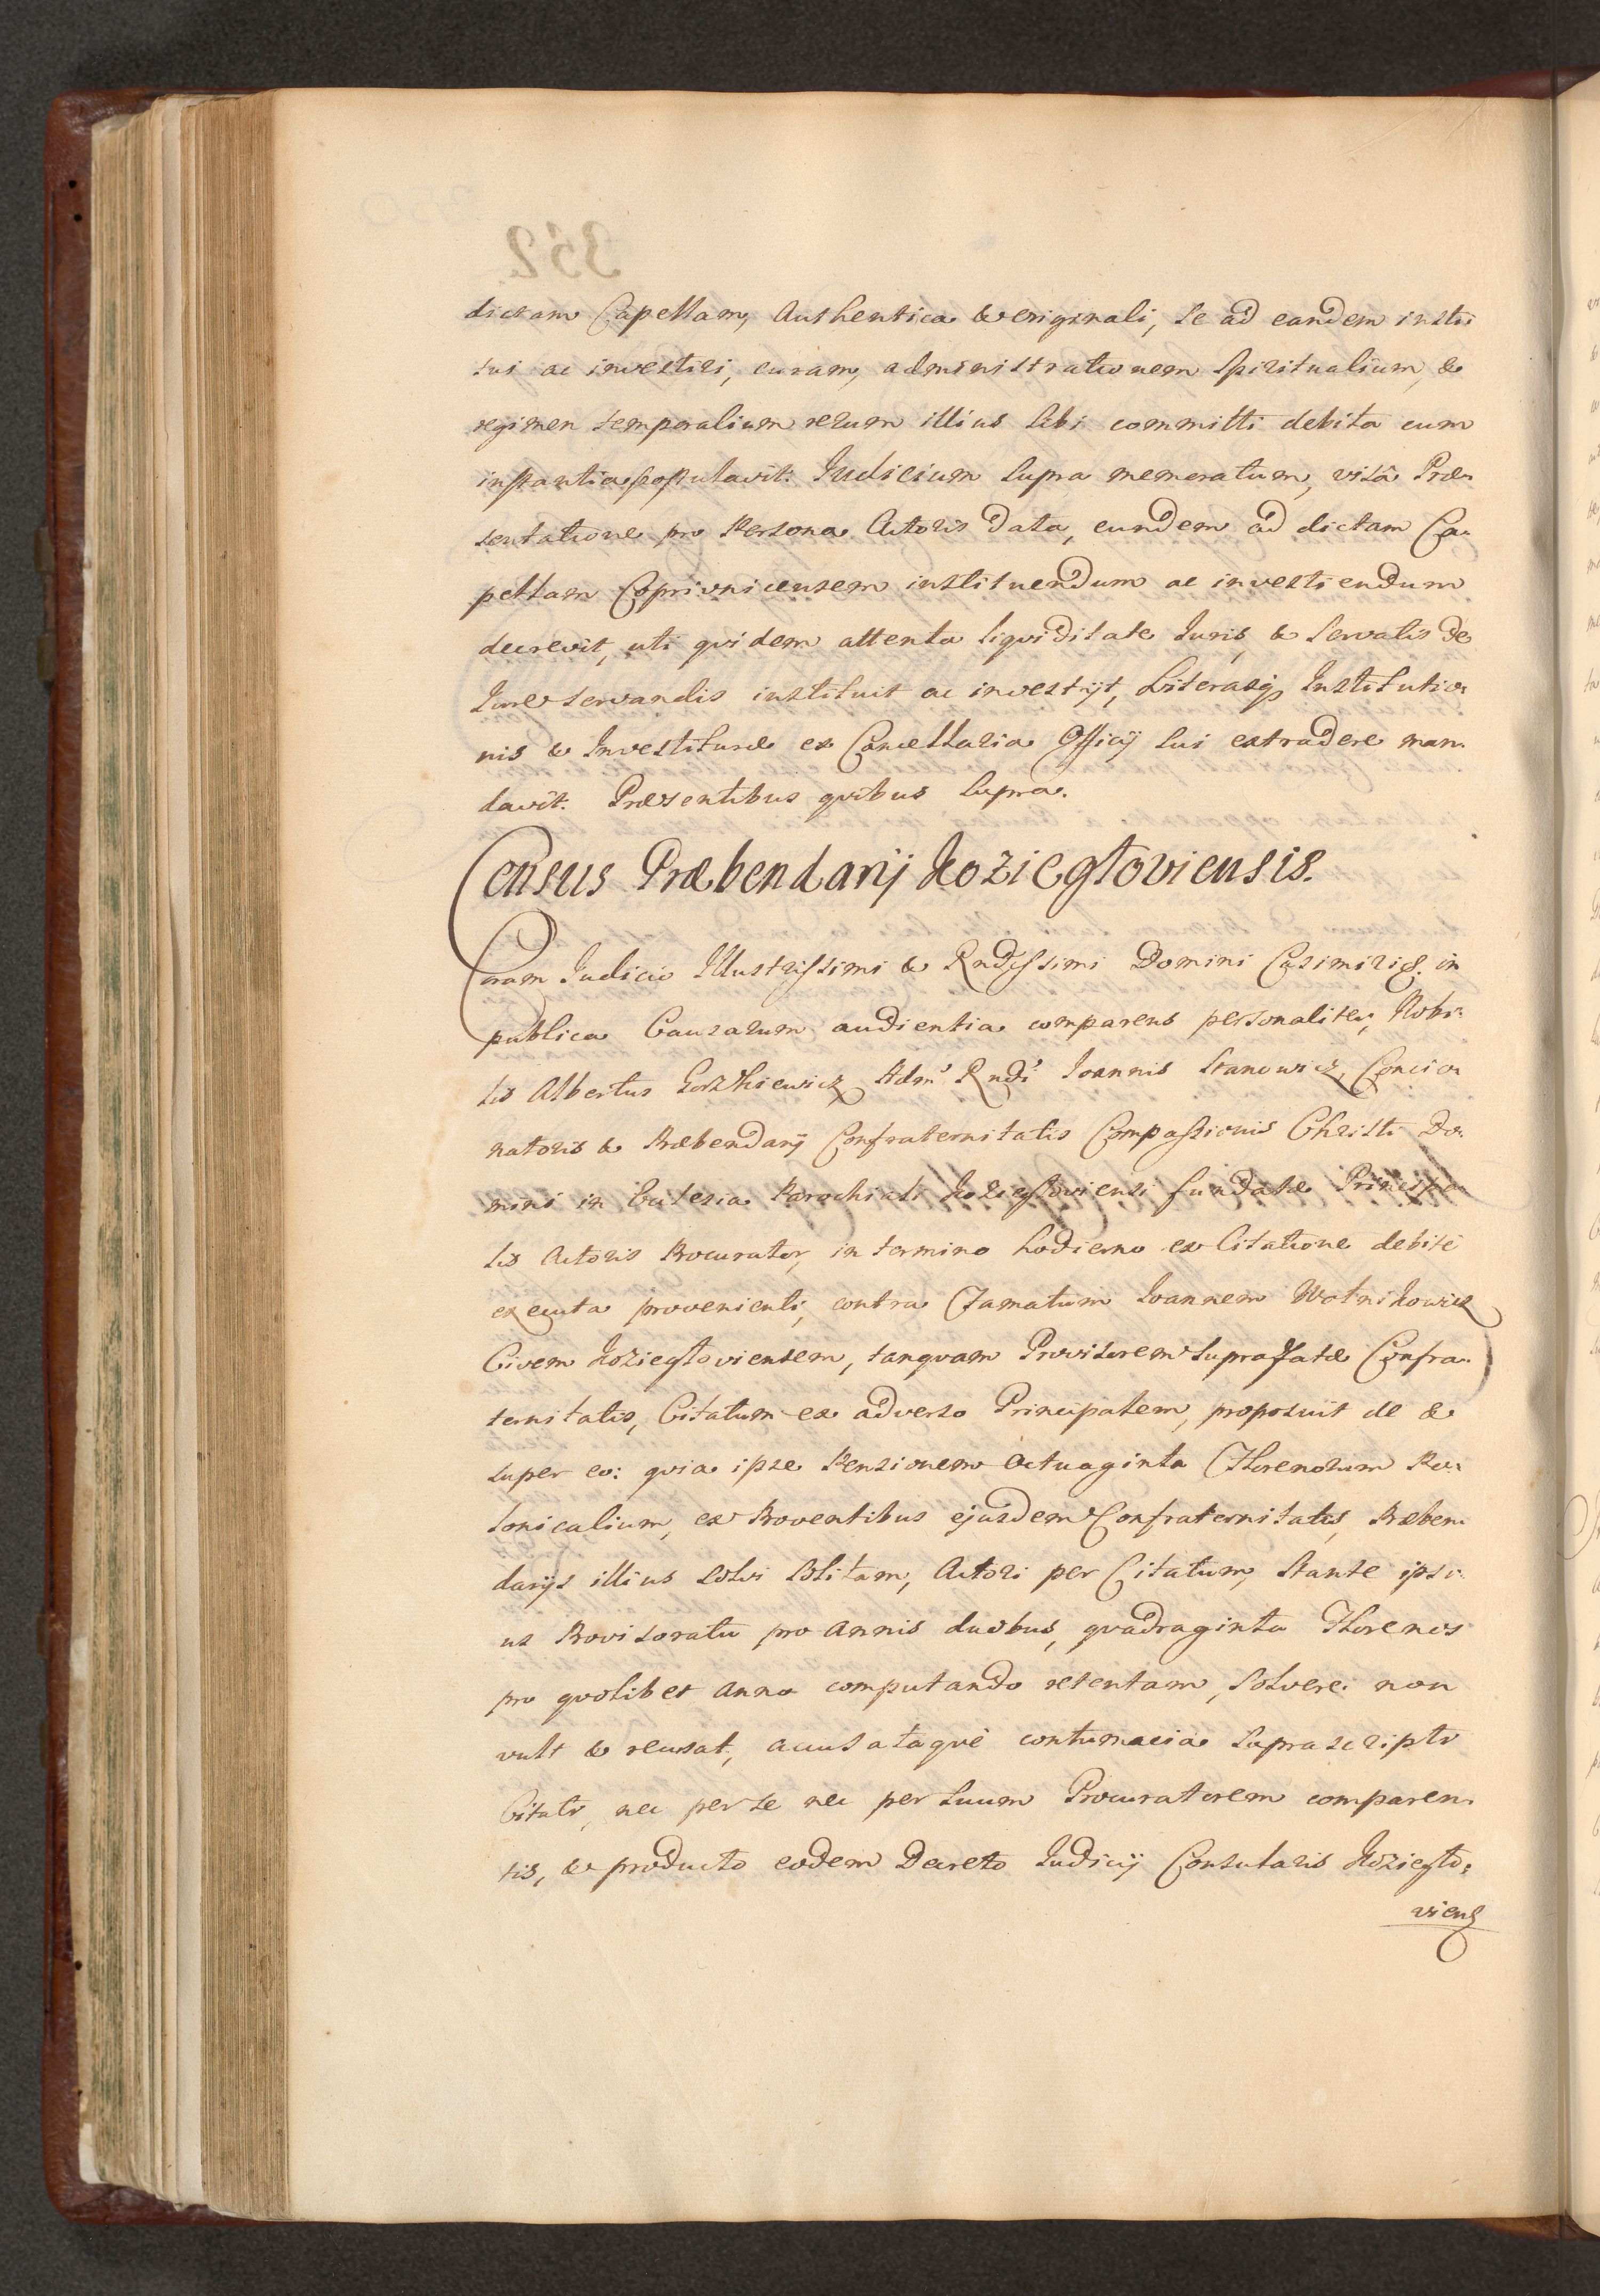 dictam Capellam, Authentica & originali, Se ad eandem insti
tui ac investiri, curam, administrationem Spiritualium, &
regimen temporalium rerum illius Sibi committi debita cum
instantia postulavit. Judicium Supra memoratum, visâ Præ-
sentatione pro Persona Actoris data, eundem ad dictam Ca-
pellam Coprivnicensem instituendum ac investiendum
decrevit, uti quidem attenta liquiditate Juris, & Servatis de
Jure servandis instituit ac investijt, Literasq Institutio-
nis & Investituræ ex Cancellaria Officij Sui extradere man-
davit. Præsentibus quibus Supra.
Census Præbendarij Koziegłoviensis.
Coram Judicio Illustrissimi & Rndissimi Domini Casimiri &. in
publica Causarum audientia comparens personaliter, Nobi-
lis Albertus Gorzkiewicz Adm Rndi Joannis Stanowicz, Concio-
natoris & Præbendarij Confraternitatis Compassionis Christi Do-
mini in Ecclesia Parochiali Koziegłoviensi fundatæ Principa-
lis Actoris Procurator, in termino hodierno ex Citatione debitè
executa provenienti, contra Famatum Joannem Wolnikowicz
Civem Koziegłoviensem, tanquam Provisorem Suprafatæ Confra-
ternitatis, Citatum ex adverso Principalem, proposuit de &
super eo: quia ipse Pensionem Octuaginta Florenorum Po-
lonicalium, ex Proventibus ejusdem Confraternitatis, Præben-
darijs illius Solvi Solitam, Actori per Citatum, Stante ipsi-
us Provisoratu pro Annis duobus, quadraginta Florenos
pro quolibet Anno computando retentam, Solvere non
vult & recusat, accusataque contumacia Suprascripti
Citati, nec per Se nec per Suum Procuratorem comparen-
tis, & producto eodem Decreto Judicij Consularis Koziegło-
viens